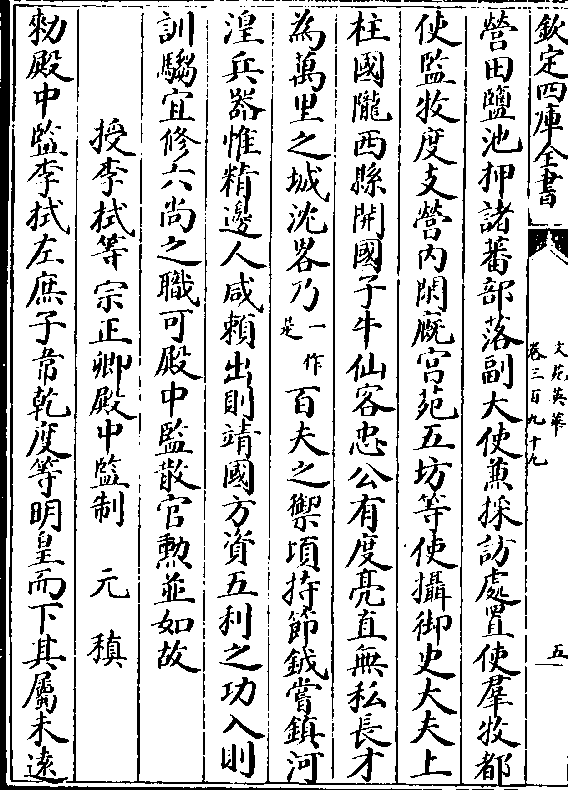 欽定四庫全書
文苑英華
卷三百九十九
五
營田鹽池押諸蕃部落副大使兼採訪處置使羣牧都
使監牧度支營内閑廐宫苑五坊等使攝御史大夫上
柱國隴西縣開國子牛仙客忠公有度亮直無私長才
為萬里之城沈畧乃一作是百夫之禦頃持節鉞嘗鎮河
湟兵器惟精邊人咸賴出則靖國方資五利之功入則
訓騶宜修六尚之職可殿中監散官勲並如故
授李拭等宗正卿殿中監制 元稹
勑殿中監李拭左庶子韋乾度等明皇而下其屬未逺